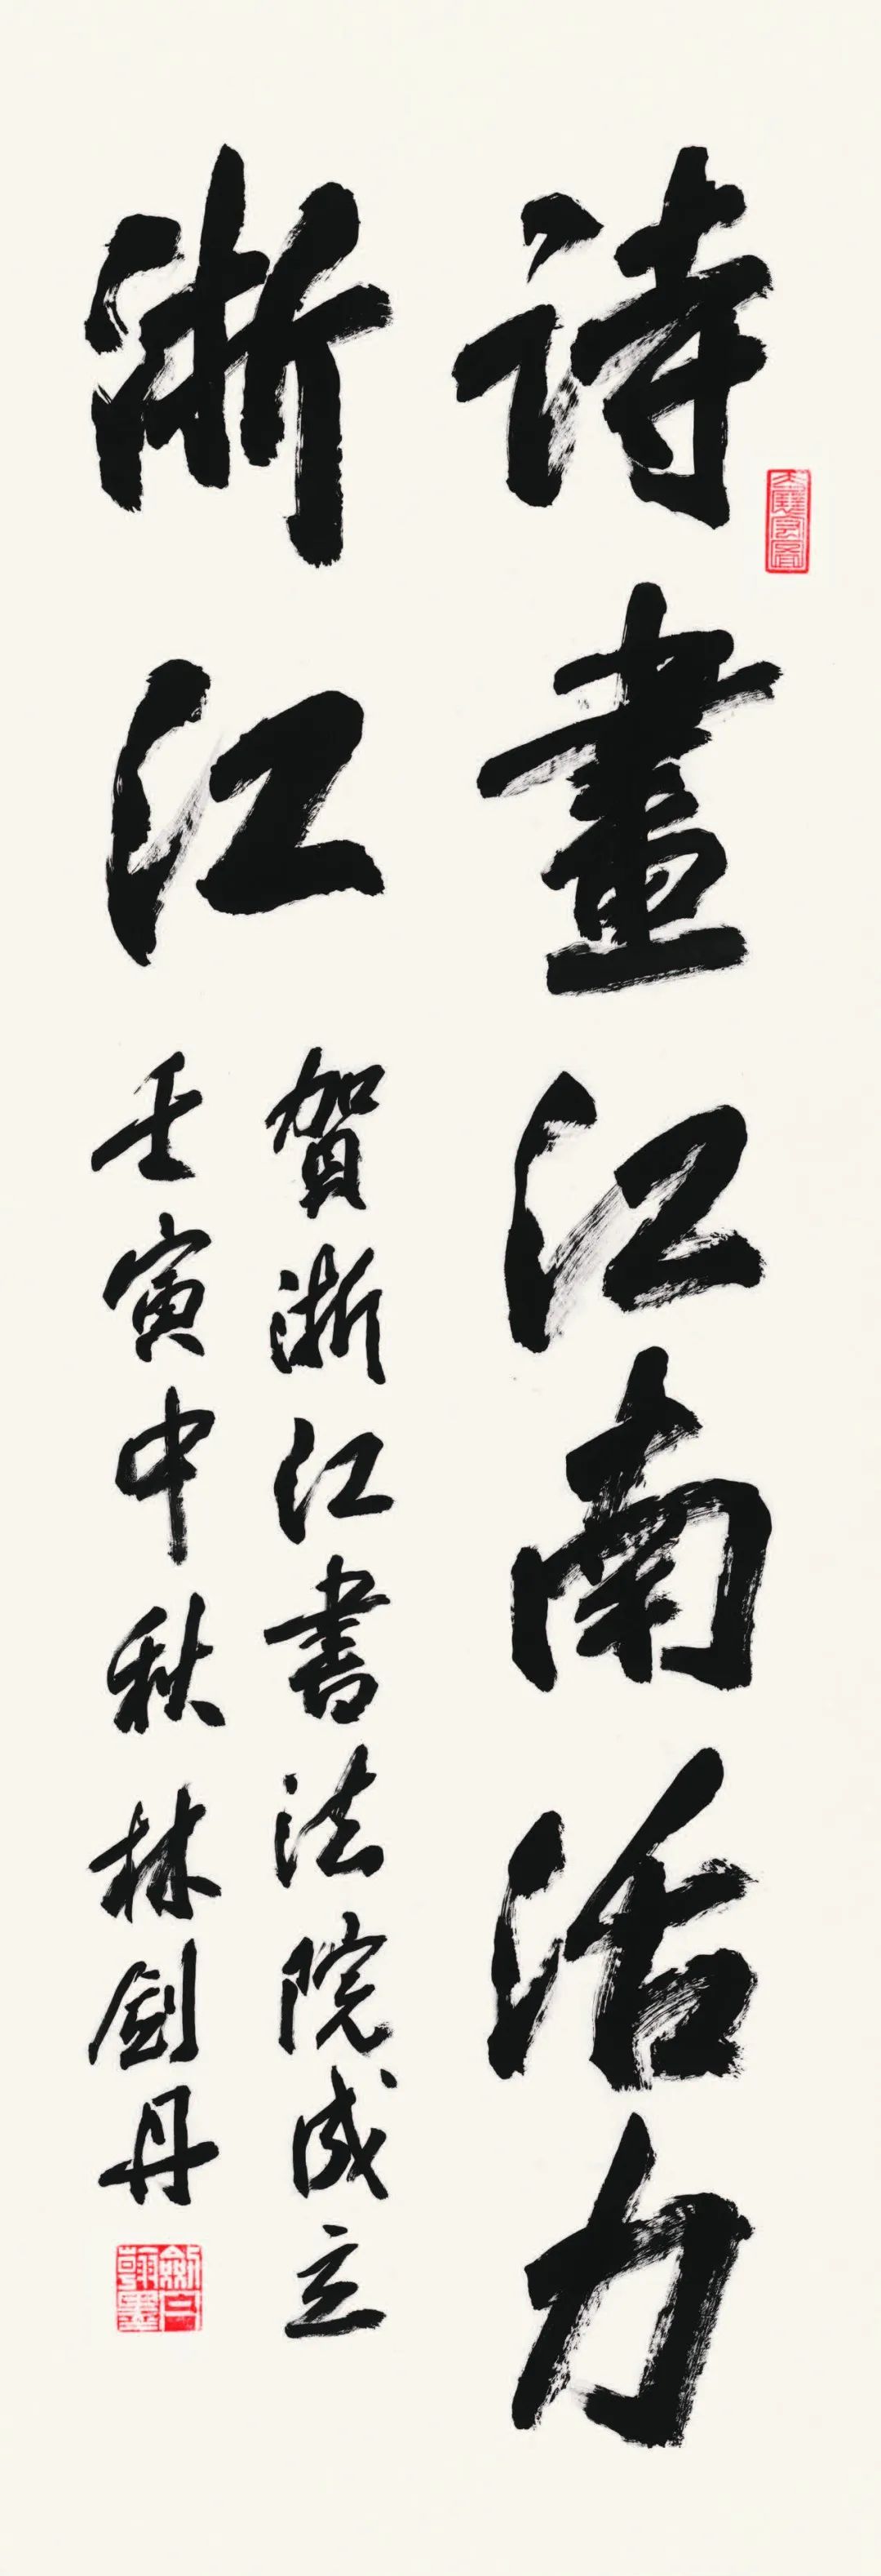 詩畫江南活力
浙江
賀浙江書法院成立
壬寅中秋林劍丹
劍丹翰墨